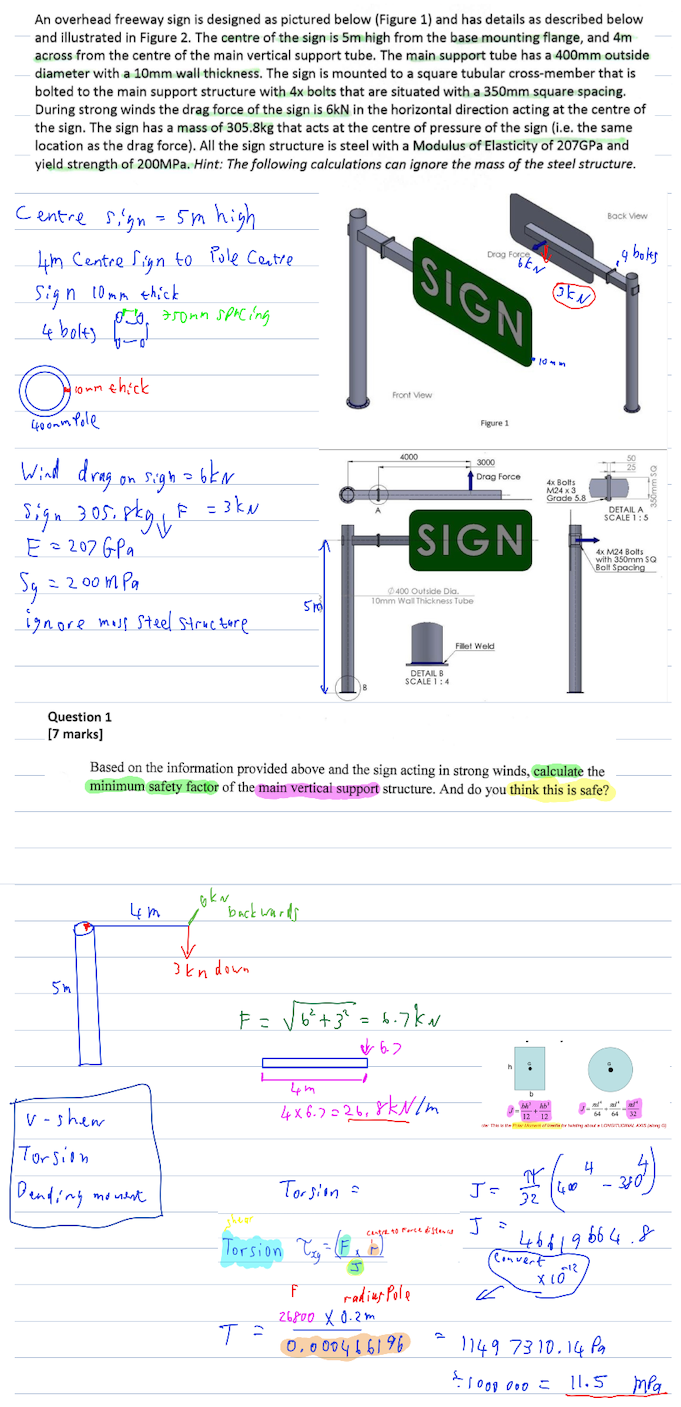 An overhead freeway sign is designed as pictured below (Figure 1) and has details as described below
and illustrated in Figure 2. The centre of the sign is 5m high from the base mounting flange, and 4m
across from the centre of the main vertical support tube. The main support tube has a 400mm outside
diameter with a 10mm wall thickness. The sign is mounted to a square tubular cross-member that is
bolted to the main support structure with 4x bolts that are situated with a 350mm square spacing.
During strong winds the drag force of the sign is 6kN in the horizontal direction acting at the centre of
the sign. The sign has a mass of 305.8kg that acts at the centre of pressure of the sign (i.e. the same
location as the drag force). All the sign structure is steel with a Modulus of Elasticity of 207GPa and
yield strength of 200MPa. Hint: The following calculations can ignore the mass of the steel structure.
Centre sign = 5m high
4m Centre Sign to Pole Centre
Sign 10mm thick
4 bolts
350mm spacing
10mm thick
400mm Pole
Back View
Drag Force
6kN
4 bolts
3kN
SIGN
10mm
Front View
Figure 1
Wind drag on sign = 6kN
Sign 305.8kg ↓ F = 3kN
E = 207 GPa
Sy = 200 MPa
ignore mass steel structure
4000
3000
Drag Force
A
50
25
4x Bolts
M24 x 3
Grade 5.8
350mm SQ
DETAIL A
SCALE 1 : 5
SIGN
4x M24 Bolts
with 350mm SQ
Bolt Spacing
5m
Ø400 Outside Dia.
10mm Wall Thickness Tube
Fillet Weld
DETAIL B
SCALE 1 : 4
B
Question 1
[7 marks]
Based on the information provided above and the sign acting in strong winds, calculate the
minimum safety factor of the main vertical support structure. And do you think this is safe?
4m
6kN
backwards
3kn down
5m
F = √6²+3² = 6.7kN
6.7
4m
4x6.7 = 26.8kN/m
h
G
b
J = bh³/12 + hb³/12
G
J = πd⁴/64 + πd⁴/64 = πd⁴/32
V - shear
Torsion
Bending moment
Torsion =
J = π/32 (400⁴ - 380⁴)
J = 46619664.8
Convert
x 10⁻¹²
shear
Torsion τxy = (F x r)/J
centre to Force distance
F
radius Pole
T = 26800 x 0.2m / 0.000466196 = 11497310.14 Pa
÷ 1000 000 = 11.5 mPa